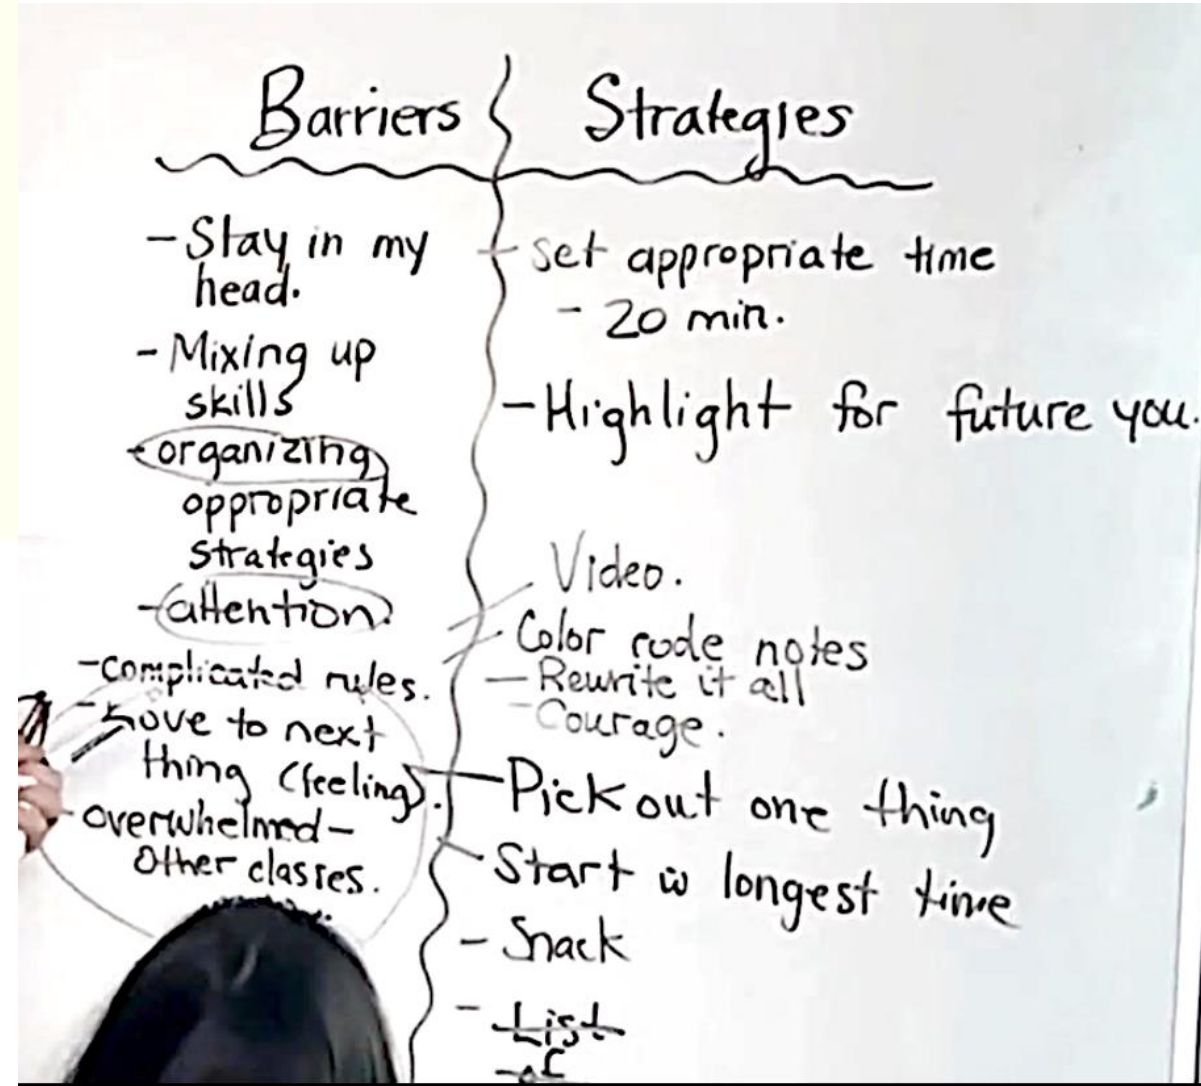 Barriers
- Stay in my
head.
- Mixing up
skills
- organizing
oppropriate
strategies
- attention
- complicated rules.
- move to next
thing (feeling).
- overwhelmed -
other classes.
Strategies
- set appropriate time
- 20 min.
- Highlight for future you.
Video.
Color code notes
- Rewrite it all
- Courage.
- Pick out one thing
- Start w longest time
- Snack
- List